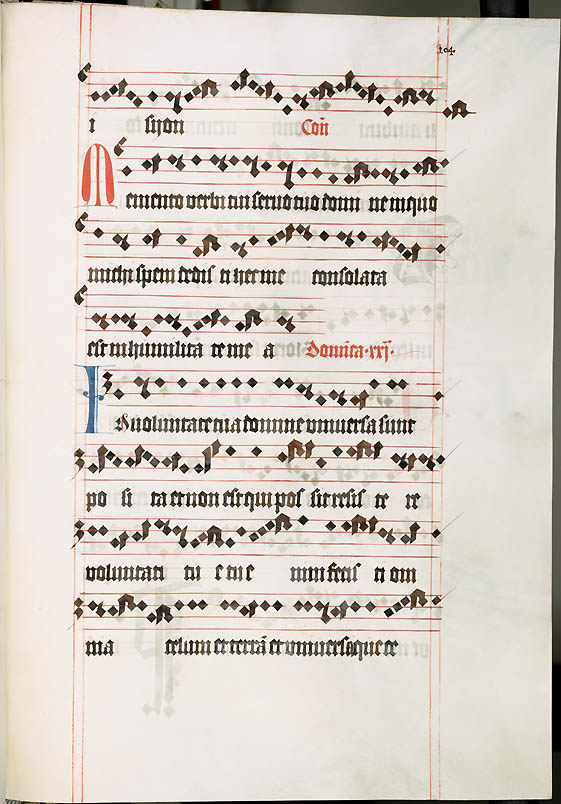 104
i syon Com̄
Memento verbi tui seruo tuo domi ne in quo
michi spem dedis ti hec me consolata
est in humilita te me a Domīca xxj
In voluntate tua domine vniuersa sunt
po si ta et non est qui pos sit resis te re
voluntati tu e tu e nim fecis ti om
ma celum et terrā et vniuersa que ce